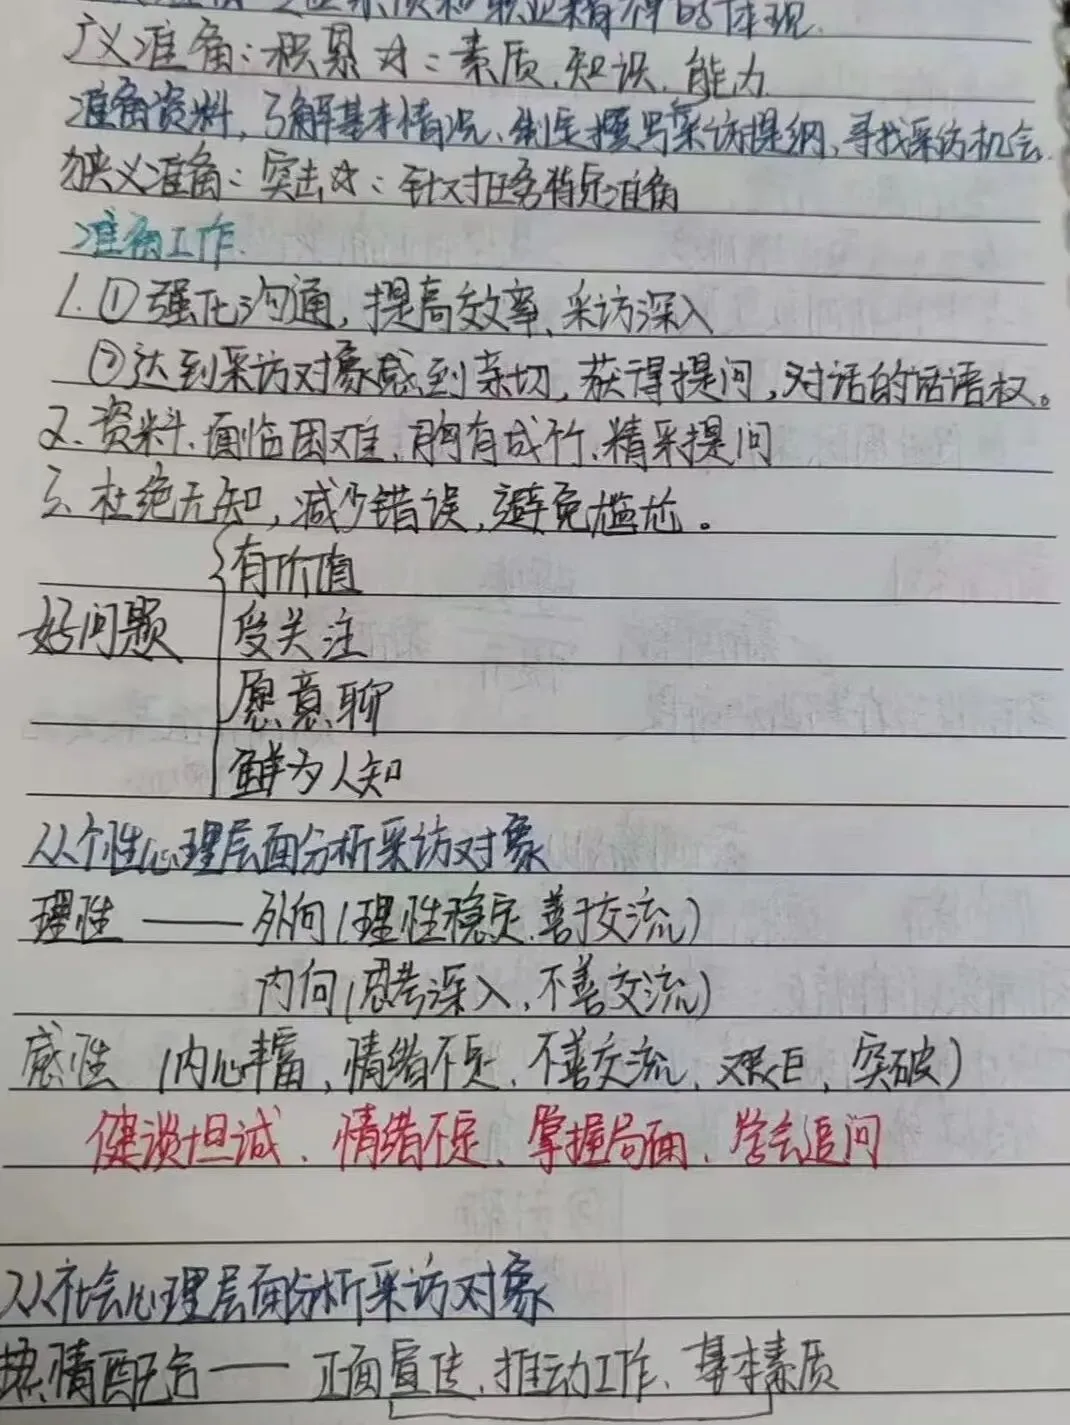 素质和职业精神的体现.
广义准备:积累☆:素质、知识、能力
准备资料,了解基本情况、制定撰写采访提纲、寻找采访机会.
狭义准备:突击☆:针对任务特定准备
准备工作.
1.①强化沟通,提高效率、采访深入
②达到采访对象感到亲切,获得提问、对话的话语权。
2.资料、面临困难、胸有成竹、精采提问
3、杜绝无知,减少错误,避免尴尬。
有价值
好问题 受关注
愿意聊
鲜为人知
从个性心理层面分析采访对象
理性——外向(理性稳定、善于交流)
内向(思考深入、不善交流)
感性(内心丰富,情绪不定、不善交流、艰巨,突破)
健谈坦诚、情绪不定、掌握局面、学会追问
从社会心理层面分析采访对象
热情配合——正面宣传、推动工作、基本素质